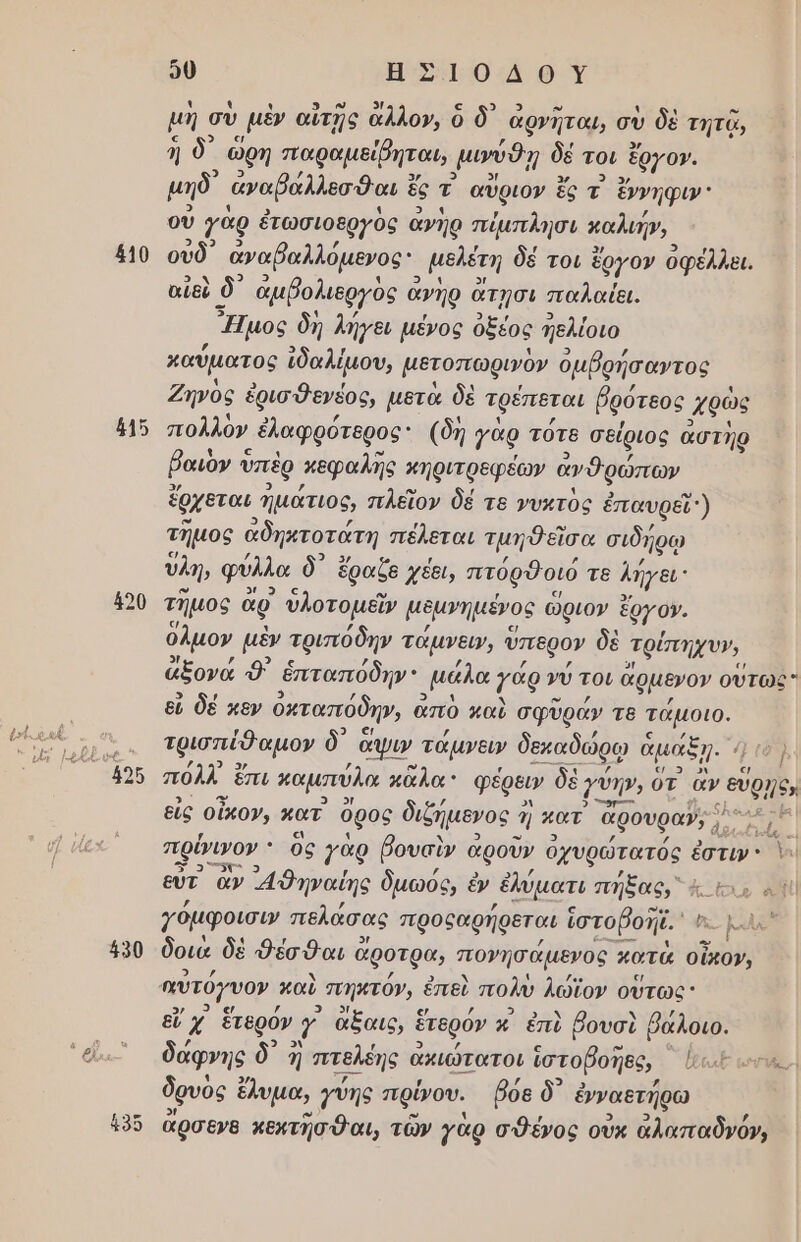 50 ΗΣΙΟΔΟΥ
μὴ σὺ μὲν αἰτῇς ἄλλον, ὁ δ᾽ ἀρνῆται, σὺ δὲ τητᾷ,
ἡ δ᾽ ὥρη παραμείβηται, μινύθῃ δέ τοι ἔργον.
μηδ᾽ ἀναβάλλεσθαι ἔς τ᾽ αὔριον ἔς τ᾽ ἔννηφιν·
οὐ γὰρ ἐτωσιοεργὸς ἀνὴρ πίμπλησι καλιήν,
410 οὐδ᾽ ἀναβαλλόμενος· μελέτη δέ τοι ἔργον ὀφέλλει.
αἰεὶ δ᾽ ἀμβολιεργὸς ἀνὴρ ἄτῃσι παλαίει.
Ἦμος δὴ λήγει μένος ὀξέος ἠελίοιο
καύματος ἰδαλίμου, μετοπωρινὸν ὀμβρήσαντος
Ζηνὸς ἐρισθενέος, μετὰ δὲ τρέπεται βρότεος χρὼς
415 πολλὸν ἐλαφρότερος· (δὴ γὰρ τότε σείριος ἀστὴρ
βαιὸν ὑπὲρ κεφαλῆς κηριτρεφέων ἀνθρώπων
ἔρχεται ἠμάτιος, πλεῖον δέ τε νυκτὸς ἐπαυρεῖ·)
τῆμος ἀδηκτοτάτη πέλεται τμηθεῖσα σιδήρῳ
ὕλη, φύλλα δ᾽ ἔραζε χέει, πτόρθοιό τε λήγει·
420 τῆμος ἄρ᾽ ὑλοτομεῖν μεμνημένος ὥριον ἔργον.
ὅλμον μὲν τριπόδην τάμνειν, ὕπερον δὲ τρίπηχυν,
ἄξονά θ᾽ ἑπταπόδην· μάλα γάρ νύ τοι ἄρμενον οὕτως·
εἰ δέ κεν ὀκταπόδην, ἀπὸ καὶ σφῦράν τε τάμοιο.
τρισπίθαμον δ᾽ ἄψιν τάμνειν δεκαδώρῳ ἁμάξῃ.
425 πόλλ᾽ ἔπι καμπύλα κᾶλα· φέρειν δὲ γύην, ὅτ᾽ ἂν εὕρῃς,
εἰς οἶκον, κατ᾽ ὄρος διζήμενος ἢ κατ᾽ ἄρουραν,
πρίνινον· ὃς γὰρ βουσὶν ἀροῦν ὀχυρώτατός ἐστιν·
εὖτ᾽ ἂν Ἀθηναίης δμωός, ἐν ἐλύματι πήξας,
γόμφοισιν πελάσας προςαρήρεται ἱστοβοῆϊ.
430 δοιὰ δὲ θέσθαι ἄροτρα, πονησάμενος κατὰ οἶκον,
αὐτόγυον καὶ πηκτόν, ἐπεὶ πολὺ λώϊον οὕτως·
εἴ χ᾽ ἕτερόν γ᾽ ἄξαις, ἕτερόν κ᾽ ἐπὶ βουσὶ βάλοιο.
δάφνης δ᾽ ἢ πτελέης ἀκιώτατοι ἱστοβοῆες,
δρυὸς ἔλυμα, γύης πρίνου. βόε δ᾽ ἐνναετήρω
435 ἄρσενε κεκτῆσθαι, τῶν γὰρ σθένος οὐκ ἀλαπαδνόν,